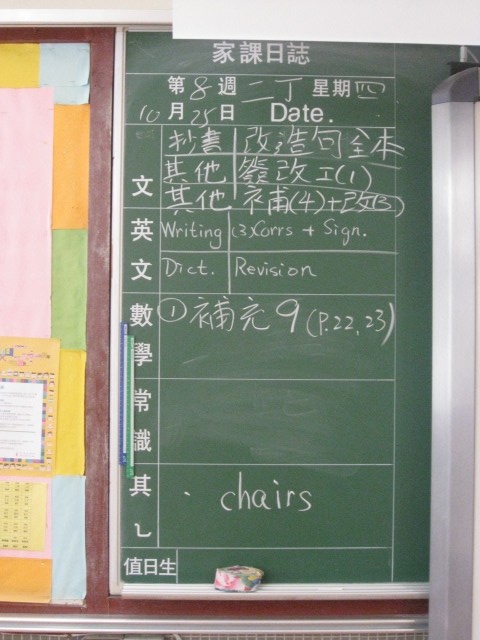 家課日誌
第8週 二丁 星期四
10月25日 Date.
抄書 改造句全本
其他 簽改工(1)
文 其他 補(4)+改(3)
英文 Writing (3)Corrs + Sign.
Dict. Revision
數學 ① 補充9 (P.22, 23)
常識
其 · chairs
值日生